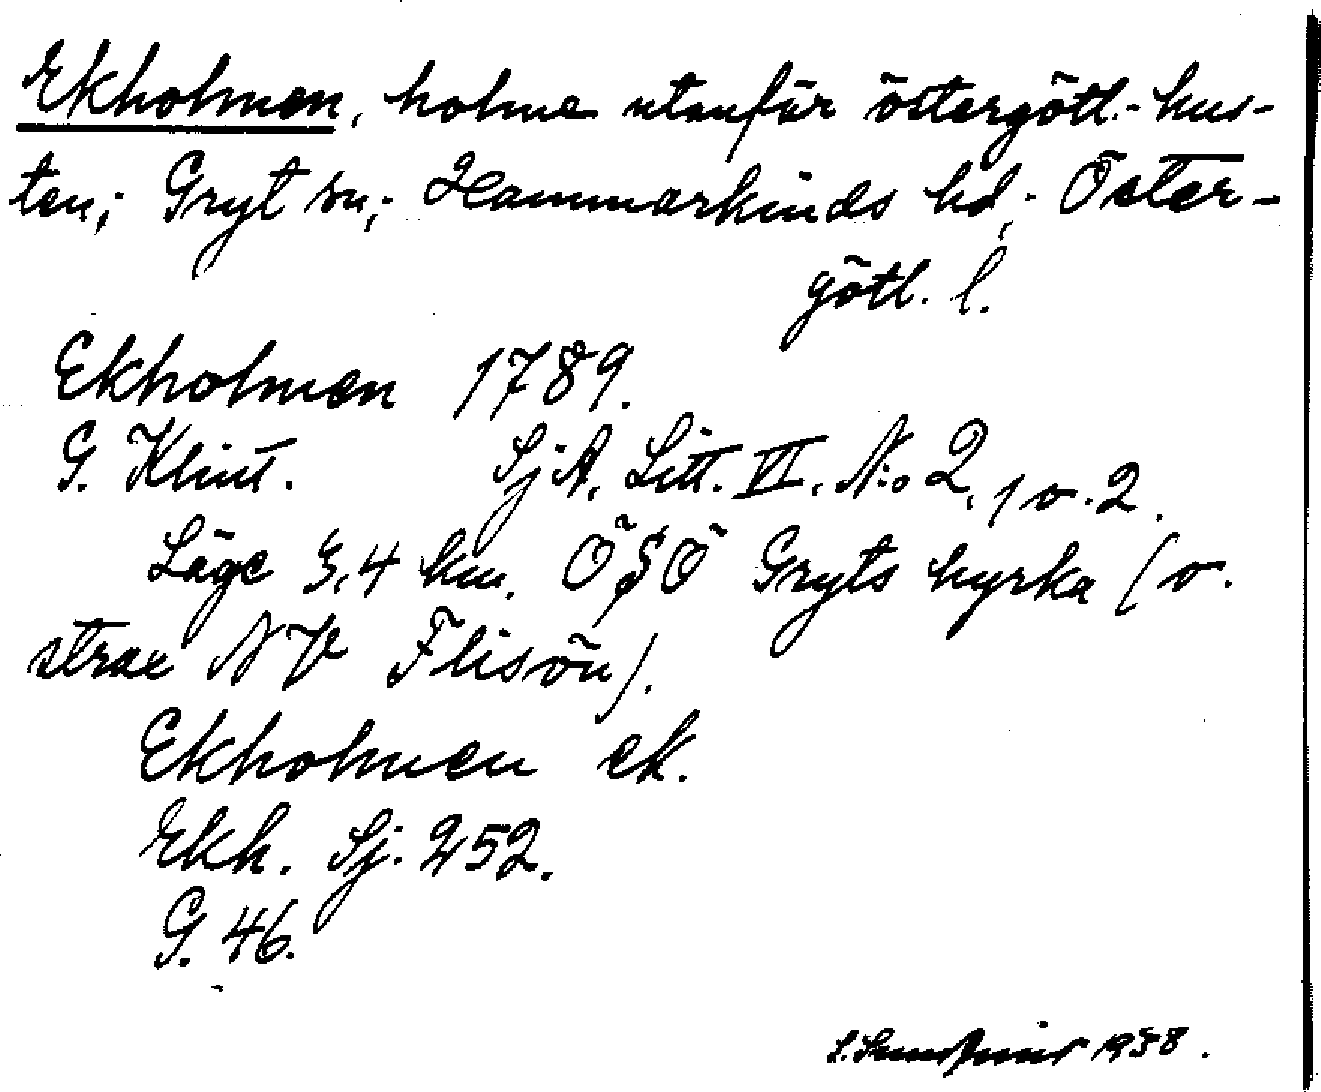 Ekholmen, holme utanför östergötl.-kus-
ten; Gryt sn; Hammarkinds hd; Öster-
götl. l.
Ekholmen 1789.
G. Klint. SjA. Litt. VI. N:o 2, 1 o. 2.
Läge 3,4 km. ÖSÖ Gryts kyrka (o.
strax NV Flisön).
Ekholmen ek.
Ekh. Sj. 252.
G. 46.
1938.